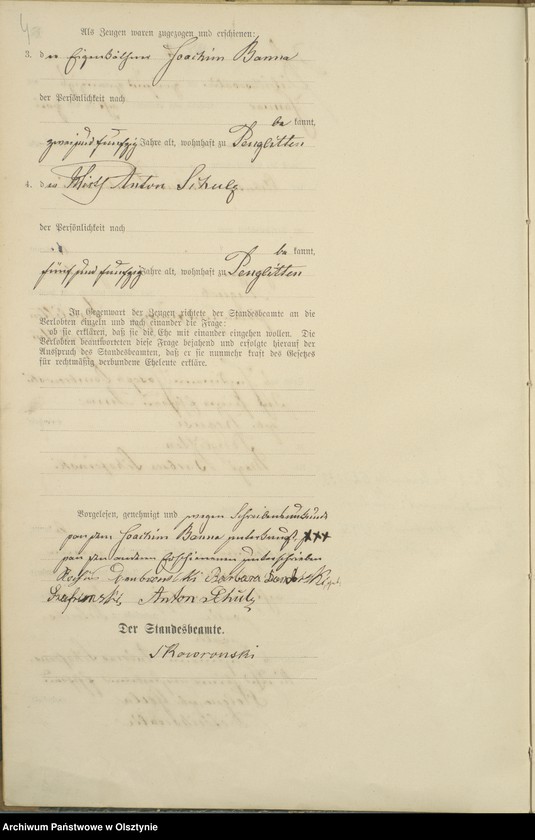 4
Als Zeugen waren zugezogen und erschienen:
3. der Eigenkäthner Joachim Banna
der Persönlichkeit nach
be kannt,
zwei und funfzig Jahre alt, wohnhaft zu Penglitten
4. der Wirth Anton Schulz
der Persönlichkeit nach
be kannt,
fünf und funfzig Jahre alt, wohnhaft zu Penglitten
In Gegenwart der Zeugen richtete der Standesbeamte an die
Verlobten einzeln und nach einander die Frage:
ob sie erklären, daß sie die Ehe mit einander eingehen wollen. Die
Verlobten beantworteten diese Frage bejahend und erfolgte hierauf der
Ausspruch des Standesbeamten, daß er sie nunmehr kraft des Gesetzes
für rechtmäßig verbundene Eheleute erkläre.
Vorgelesen, genehmigt und wegen Schreibensunkunde
von dem Joachim Banna unterkreuzt XXX
von den andern Erschienenen unterschrieben
Dombrowski Barbara
Anton Schulz
Der Standesbeamte.
Skowronski
Archiwum Państwowe w Olsztynie